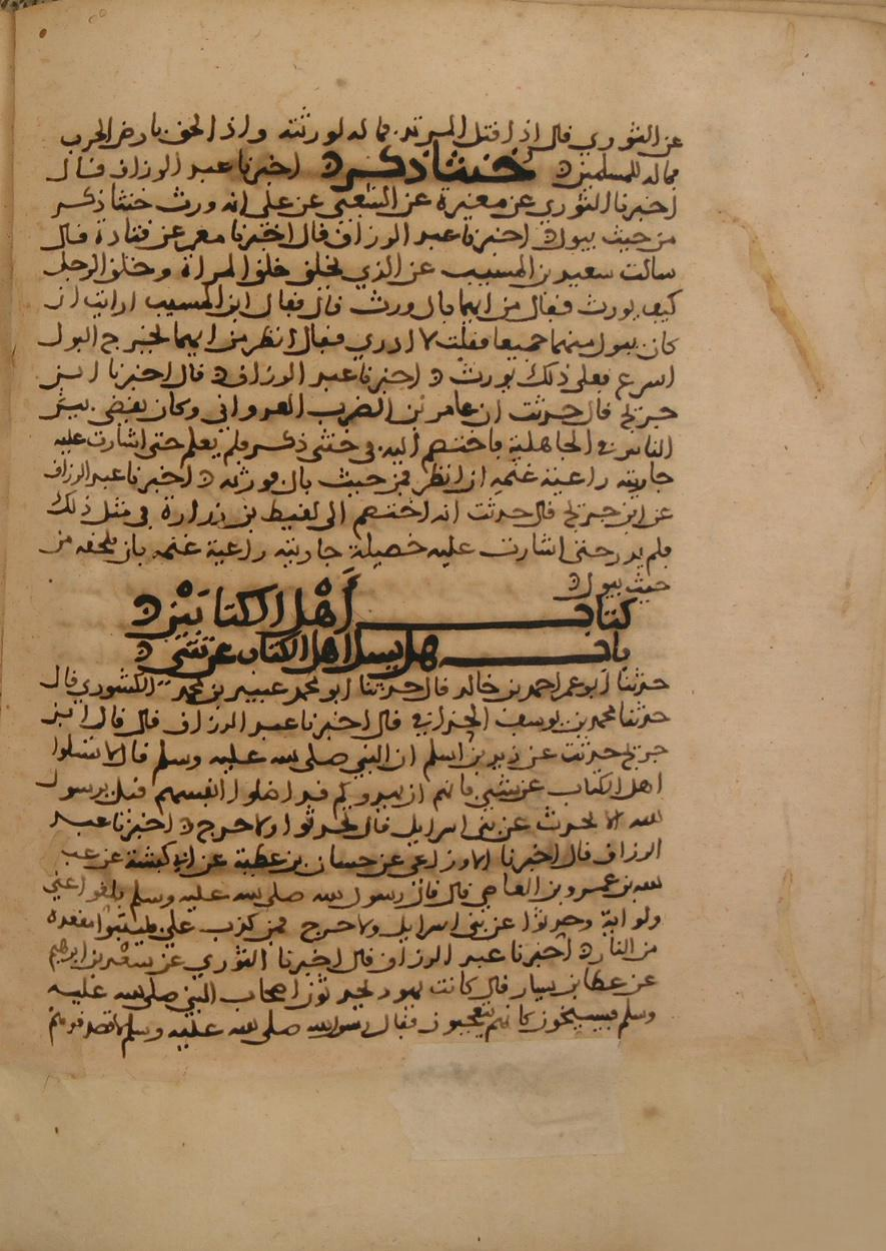 عن الثوري قال اذا قتل المرتد فماله لورثته واذا لحق بارض الحرب
فماله للمسلمين ه خنثا ذكر ه اخبرنا عبد الرزاق قال
اخبرنا الثوري عن مغيرة عن الشعبي عن علي انه ورث خنثا ذكر
من حيث يبول ه اخبرنا عبد الرزاق قال اخبرنا معمر عن قتادة قال
سالت سعيد بن المسيب عن الذي يخلق خلق المراة وخلق الرجل
كيف يورث فقال من ايهما بال ورث قال فقال ابن المسيب ارايت ان
كان يبول منهما جميعا فقلت لا ادري فقال انظر من ايهما يخرج البول
اسرع فعلى ذلك يورث ه اخبرنا عبد الرزاق ه قال اخبرنا ابن
جريج قال حدثت ان عامر بن الضرب العدواني وكان يقضي بين
الناس في الجاهلية فاختصم اليه في خنثى ذكر فلم يعلم حتى اشارت عليه
جاريته راعية غنمه ان انظر فمن حيث بال فورثه ه اخبرنا عبد الرزاق
عن ابن جريج قال حدثت انه اختصم الى لقيط بن زرارة في مثل ذلك
فلم يدر حتى اشارت عليه خصيلة جاريته راعية غنمه بان يلحقه من
حيث يبول ه
كتاب اهل الكتابين ه
باب هل يسل اهل الكتاب عن شي ه
حدثنا ابو عمر احمد بن خالد قال حدثنا ابو محمد عبيد بن محمد الكشوري قال
حدثنا محمد بن يوسف الحذاقي قال اخبرنا عبد الرزاق قال قال ابن
جريج حدثت عن زيد بن اسلم ان النبي صلى الله عليه وسلم قال لا تسلوا
اهل الكتاب عن شي فانهم ان يهدوكم قد اضلوا انفسهم قيل يرسول
الله الا نحدث عن بني اسرايل قال تحدثوا ولا حرج ه اخبرنا عبد
الرزاق قال اخبرنا الاوزاعي عن حسان بن عطية عن ابي كبشة عن عبد
الله بن عمرو بن العاصي قال قال رسول الله صلى الله عليه وسلم بلغوا عني
ولو اية وحدثوا عن بني اسرايل ولا حرج فمن كذب علي فليتبوا مقعده
من النار ه اخبرنا عبد الرزاق قال اخبرنا الثوري عن سعد بن ابرهيم
عن عطا بن يسار قال كانت يهود يحدثون اصحاب النبي صلى الله عليه
وسلم فيسيخون كانهم يتعجبون فقال رسول الله صلى الله عليه وسلم لا تصدقوهم